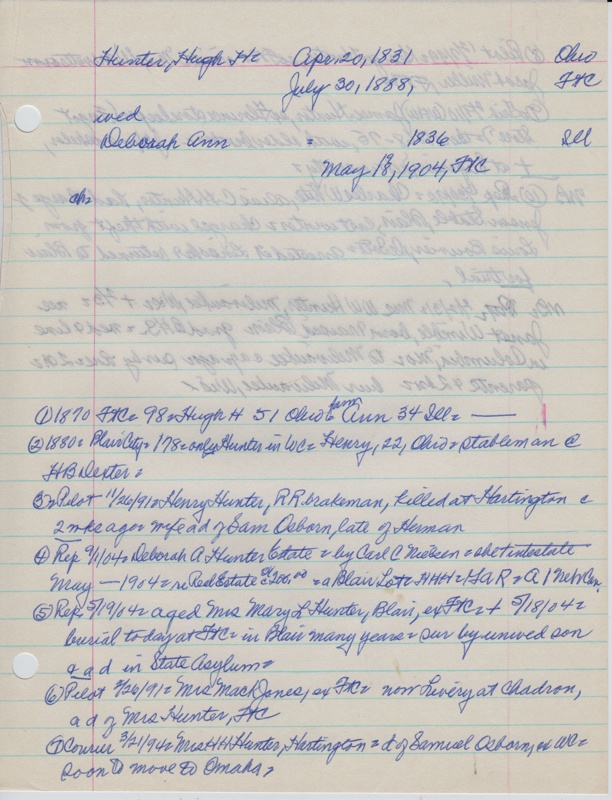 Hunter, Hugh H= Apr. 20, 1831 Ohio
July 30, 1888, FtC
wed
Deborah Ann = 1836 Ill
May 18, 1904, FtC
ch=
① 1870 FtC= 98= Hugh H 51 Ohio farm Ann 34 Ill= —
② 1880= Blair City= 178= only Hunter in WC= Henry, 22, Ohio= stableman @
HB Dexter=
③ Pilot 11/26/91= Henry Hunter, R.R. brakeman, killed at Hartington c
2 wks ago= wife a d of Sam Osborn, late of Herman
④ Rep 9/1/04= Deborah A Hunter Estate= by Carl C Nielsen= she + intestate
May — 1904= re Real Estate c $1200.00= a Blair Lot= HHH= GAR=
⑤ Rep. 5/19/04= aged Mrs Mary L Hunter, Blair, ex FtC= + 5/18/04=
burial today at FtC= in Blair many years= sur by unwed son
& a d in State Asylum=
⑥ Pilot 2/26/91= Mrs Mack Jones, ex FtC= now Livery at Chadron,
a d of Mrs Hunter, FtC
⑦ Courier 3/21/94= Mrs HH Hunter, Hartington= d of Samuel Osborn, ex WC=
soon to move to Omaha=